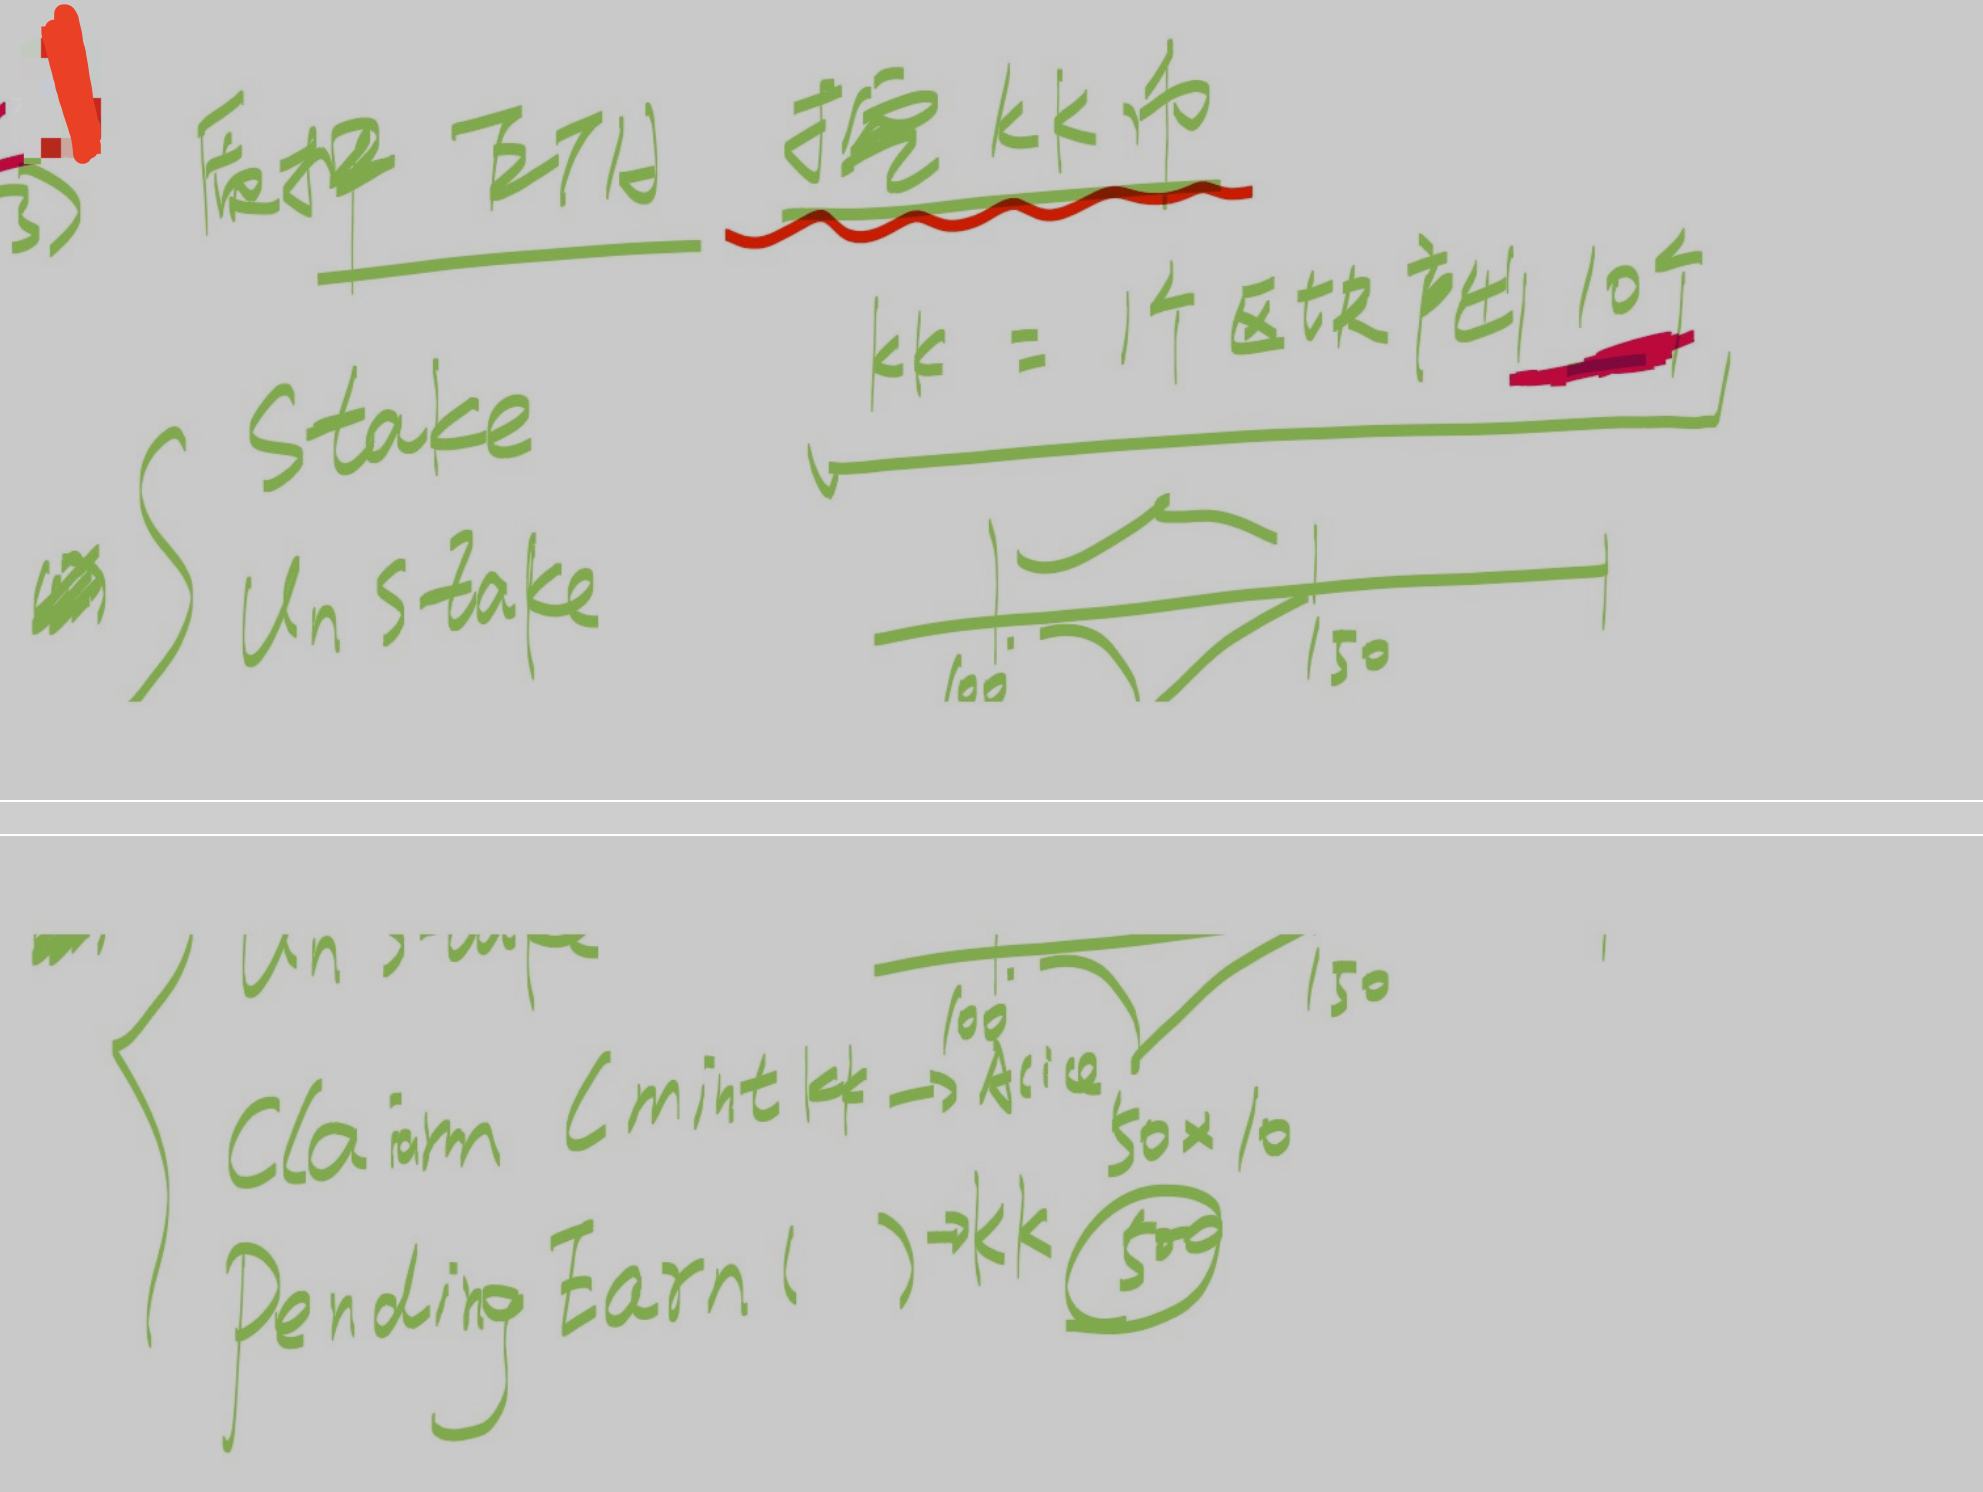 质押 ETH 挖 kk 币
kk = 1个区块产出 10个
Stake
Unstake
100 150
Unstake
100 150
Claim (mint kk → Alice
50 x 10
Pending Earn ( ) → kk 500